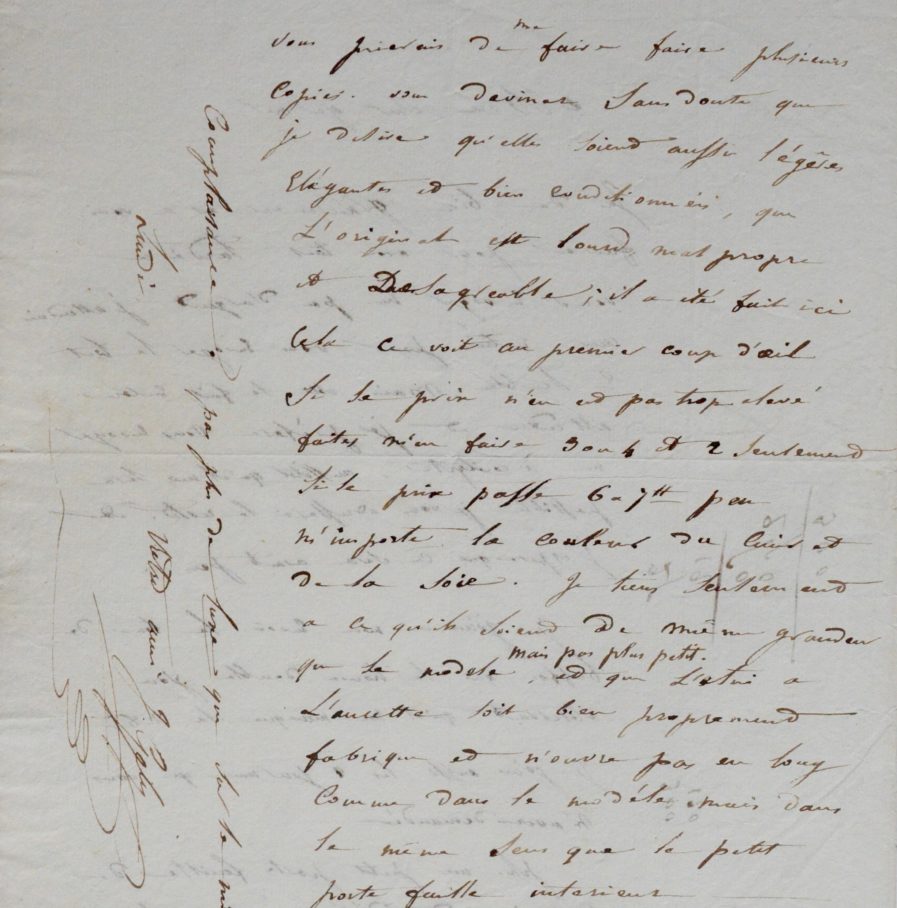 vous prierais de me faire faire plusieurs
Copies. vous devinez Sans doute que
je desire qu'elles soiend aussi légères
Elégantes et bien conditionnées, que
L'original est lourd mal propre
et Desagreable; il a été fait ici
Cela ce voit au premier coup d'œil
Si le prix n'en est pas trop elevé
faites n'en faire 3 ou 4 et 2 seulemend
Si le prix passe 6 a 7tt peu
n'importe la couleur du Cuir et
de la Soie. Je tiens Seulemend
a ce qu'ils Soiend De même grandeur
que le modele, mais pas plus petit. et que L'etui a
L'ausette soit bien propremend
fabrique et n'ouvre pas en long
Comme dans le modéle, mais dans
le même Sens que le petit
porte fuille interieur
Complassance; pas plus de luxe que sur le
Lundi
Votre ami